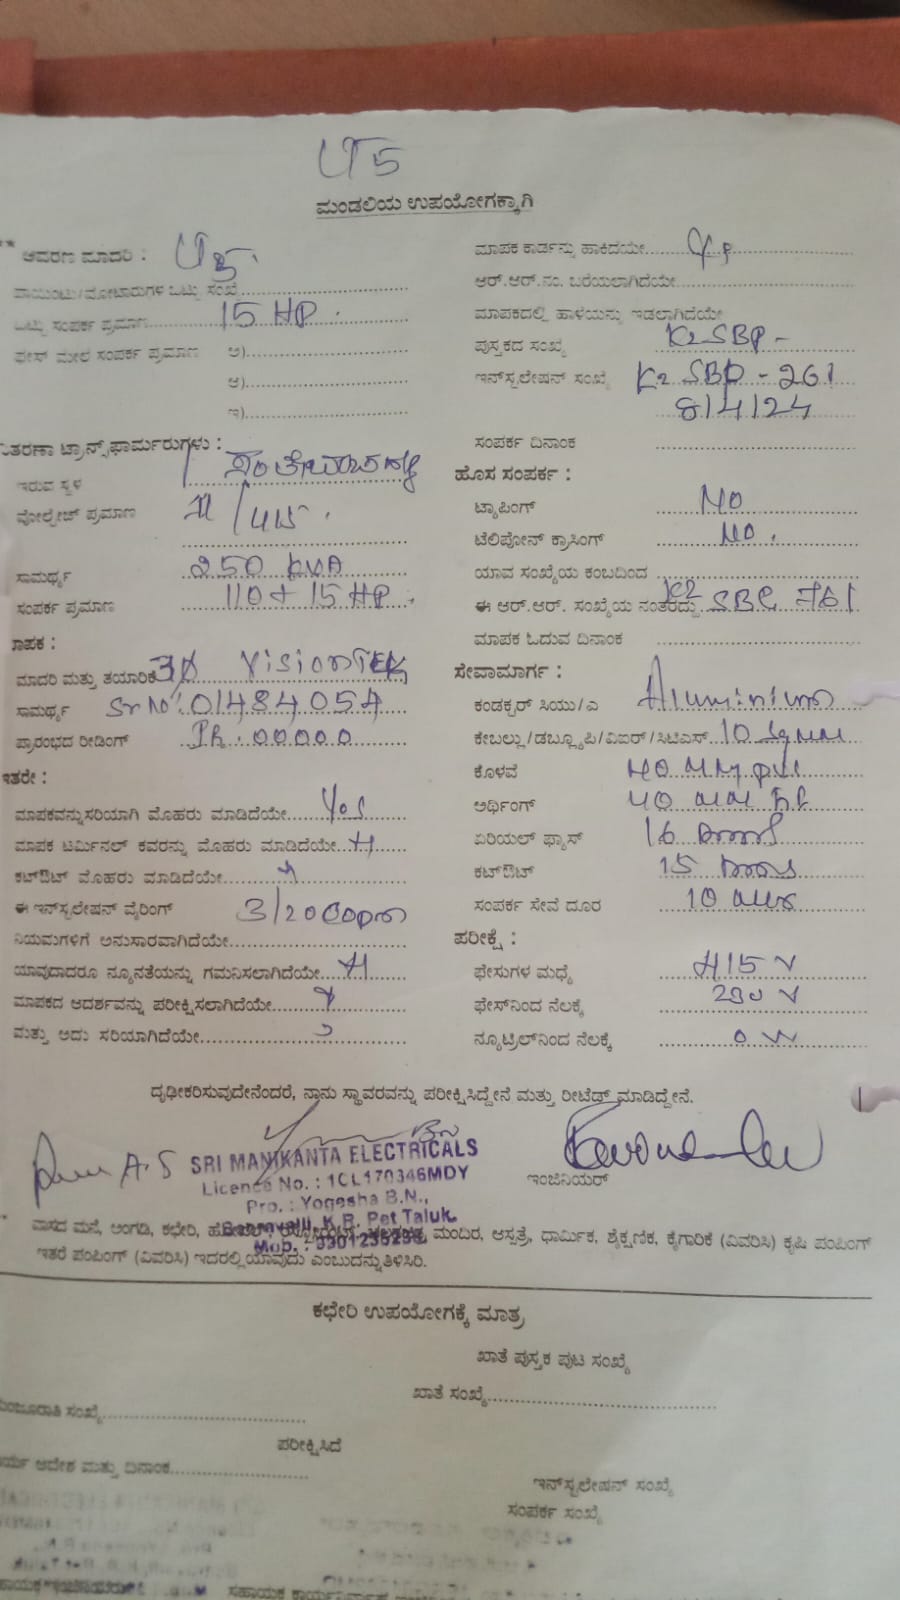 LT5
ಮಂಡಲಿಯ ಉಪಯೋಗಕ್ಕಾಗಿ
** ಆವರಣ ಮಾದರಿ :
ಪಾಯಿಂಟು/ಮೋಟಾರುಗಳ ಒಟ್ಟು ಸಂಖ್ಯೆ
ಒಟ್ಟು ಸಂಪರ್ಕ ಪ್ರಮಾಣ 15 HP
ಫೇಸ್ ಮೇಲೆ ಸಂಪರ್ಕ ಪ್ರಮಾಣ ಅ)
ಆ)
ಇ)
ಟ್ರಾನ್ಸ್‌ಫಾರ್ಮರುಗಳು :
ಇರುವ ಸ್ಥಳ
ವೋಲ್ಟೇಜ್ ಪ್ರಮಾಣ 11/415
ಸಾಮರ್ಥ್ಯ 250 KVA
ಸಂಪರ್ಕ ಪ್ರಮಾಣ 110 + 15 HP
ಮಾಪಕ :
ಮಾದರಿ ಮತ್ತು ತಯಾರಿಕೆ 3Ø VisionTEK
ಸಾಮರ್ಥ್ಯ Sr No: 01484054
ಪ್ರಾರಂಭದ ರೀಡಿಂಗ್ IR. 00000
ಇತರೇ :
ಮಾಪಕವನ್ನು ಸರಿಯಾಗಿ ಮೊಹರು ಮಾಡಿದೆಯೇ Yes
ಮಾಪಕ ಟರ್ಮಿನಲ್ ಕವರನ್ನು ಮೊಹರು ಮಾಡಿದೆಯೇ
ಕಟ್‌ಔಟ್ ಮೊಹರು ಮಾಡಿದೆಯೇ
ಈ ಇನ್‌ಸ್ಟಲೇಷನ್ ವೈರಿಂಗ್ 3/20
ನಿಯಮಗಳಿಗೆ ಅನುಸಾರವಾಗಿದೆಯೇ
ಯಾವುದಾದರೂ ನ್ಯೂನತೆಯನ್ನು ಗಮನಿಸಲಾಗಿದೆಯೇ
ಮಾಪಕದ ಆದರ್ಶವನ್ನು ಪರೀಕ್ಷಿಸಲಾಗಿದೆಯೇ
ಮತ್ತು ಅದು ಸರಿಯಾಗಿದೆಯೇ
ಮಾಪಕ ಕಾರ್ಡನ್ನು ಹಾಕಿದೆಯೇ
ಆರ್.ಆರ್.ನಂ. ಬರೆಯಲಾಗಿದೆಯೇ
ಮಾಪಕದಲ್ಲಿ ಹಾಳೆಯನ್ನು ಇಡಲಾಗಿದೆಯೇ
ಪುಸ್ತಕದ ಸಂಖ್ಯೆ K2SBP -
ಇನ್‌ಸ್ಟಲೇಷನ್ ಸಂಖ್ಯೆ K2 SBP - 261
8/4/24
ಸಂಪರ್ಕ ದಿನಾಂಕ
ಹೊಸ ಸಂಪರ್ಕ :
ಟ್ಯಾಪಿಂಗ್ NO
ಟೆಲಿಪೋನ್ ಕ್ರಾಸಿಂಗ್ NO.
ಯಾವ ಸಂಖ್ಯೆಯ ಕಂಬದಿಂದ
ಈ ಆರ್.ಆರ್. ಸಂಖ್ಯೆಯ ನಂತರದ್ದು K2
ಮಾಪಕ ಓದುವ ದಿನಾಂಕ
ಸೇವಾಮಾರ್ಗ :
ಕಂಡಕ್ಟರ್ ಸಿಯು/ಎ Aluminium
ಕೇಬಲ್ಲು/ಡಬ್ಲ್ಯೂಪಿ/ವಿಐರ್/ಸಿಟಿಎಸ್ 10 Sq mm
ಕೊಳವೆ 40 MM PVC
ಅರ್ಥಿಂಗ್ 40 MM
ಏರಿಯಲ್ ಫ್ಯೂಸ್ 16 Amps
ಕಟ್‌ಔಟ್ 15 Amps
ಸಂಪರ್ಕ ಸೇವೆ ದೂರ 10
ಪರೀಕ್ಷೆ :
ಫೇಸುಗಳ ಮಧ್ಯೆ 415 V
ಫೇಸ್‌ನಿಂದ ನೆಲಕ್ಕೆ 230 V
ನ್ಯೂಟ್ರಿಲ್‌ನಿಂದ ನೆಲಕ್ಕೆ 0 V
ದೃಢೀಕರಿಸುವುದೇನೆಂದರೆ, ನಾನು ಸ್ಥಾವರವನ್ನು ಪರೀಕ್ಷಿಸಿದ್ದೇನೆ ಮತ್ತು ರೀಟೆಡ್ ಮಾಡಿದ್ದೇನೆ.
SRI MANIKANTA ELECTRICALS
Licence No. : 1CL170346MDY
Pro. : Yogesha B.N.,
K.R. Pet Taluk.
ಇಂಜಿನಿಯರ್
* ವಾಸದ ಮನೆ, ಅಂಗಡಿ, ಕಛೇರಿ, ಮಂದಿರ, ಆಸ್ಪತ್ರೆ, ಧಾರ್ಮಿಕ, ಶೈಕ್ಷಣಿಕ, ಕೈಗಾರಿಕೆ (ವಿವರಿಸಿ) ಕೃಷಿ ಪಂಪಿಂಗ್
ಇತರೆ ಪಂಪಿಂಗ್ (ವಿವರಿಸಿ) ಇದರಲ್ಲಿ ಯಾವುದು ಎಂಬುದನ್ನು ತಿಳಿಸಿರಿ.
ಕಛೇರಿ ಉಪಯೋಗಕ್ಕೆ ಮಾತ್ರ
ಖಾತೆ ಪುಸ್ತಕ ಪುಟ ಸಂಖ್ಯೆ
ಖಾತೆ ಸಂಖ್ಯೆ
ಮಂಜೂರಾತಿ ಸಂಖ್ಯೆ
ಪರೀಕ್ಷಿಸಿದೆ
ಆದೇಶ ಮತ್ತು ದಿನಾಂಕ
ಇನ್‌ಸ್ಟಲೇಷನ್ ಸಂಖ್ಯೆ
ಸಂಪರ್ಕ ಸಂಖ್ಯೆ